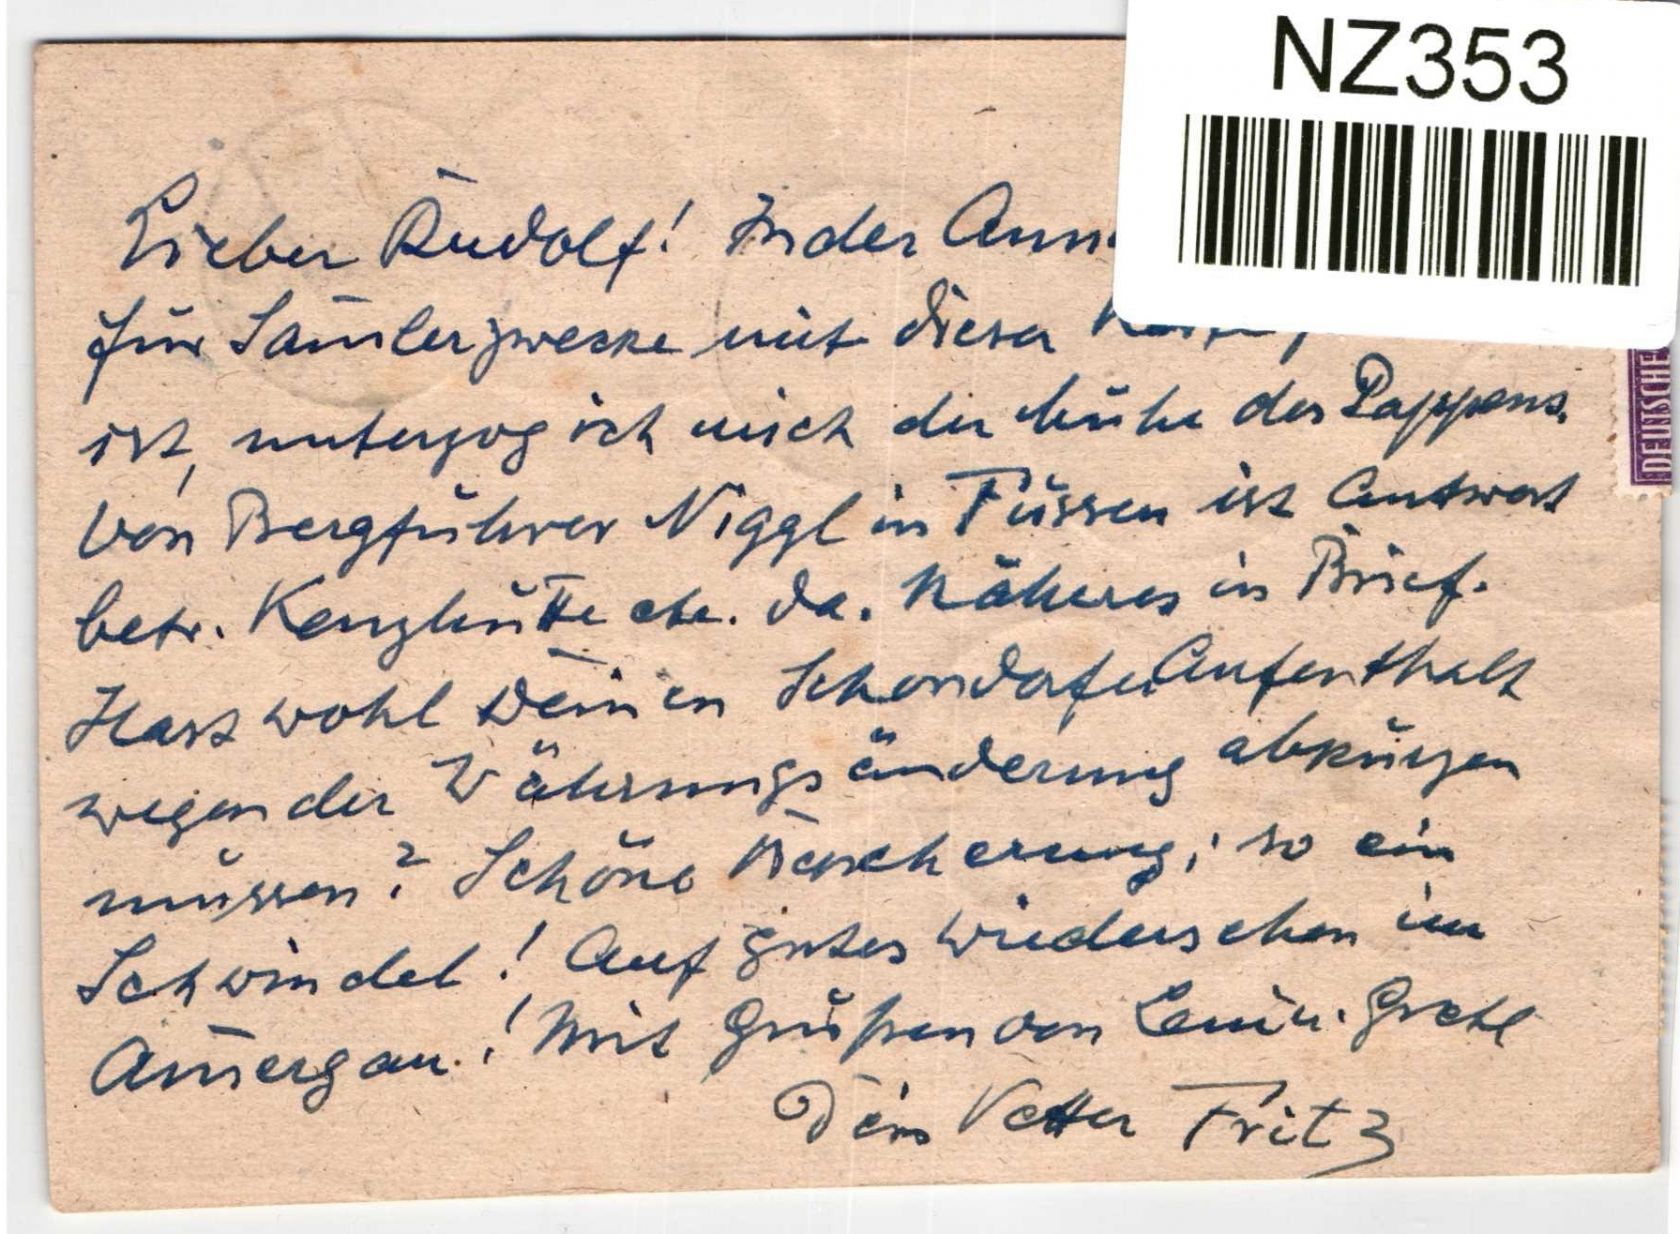 NZ353
Lieber Rudolf! In der Ann
für Sam̄lerzwecke mit dieser
ist, unterzog ich mich der Mühe des Pappens.
Von Bergführer Niggl in Füssen ist Antwort
betr. Kenzhütte etc. da. Näheres in Brief.
Hast wohl Deinen Schondorfer Aufenthalt
wegen der Währungsänderung abkürzen
müssen? Schöne Bescherung, so ein
Schwindel! Auf gutes Wiedersehen im
Am̄ergau! Mit Grüßen von Leni u. Gretl
Dein Vetter Fritz
DEUTSCHE